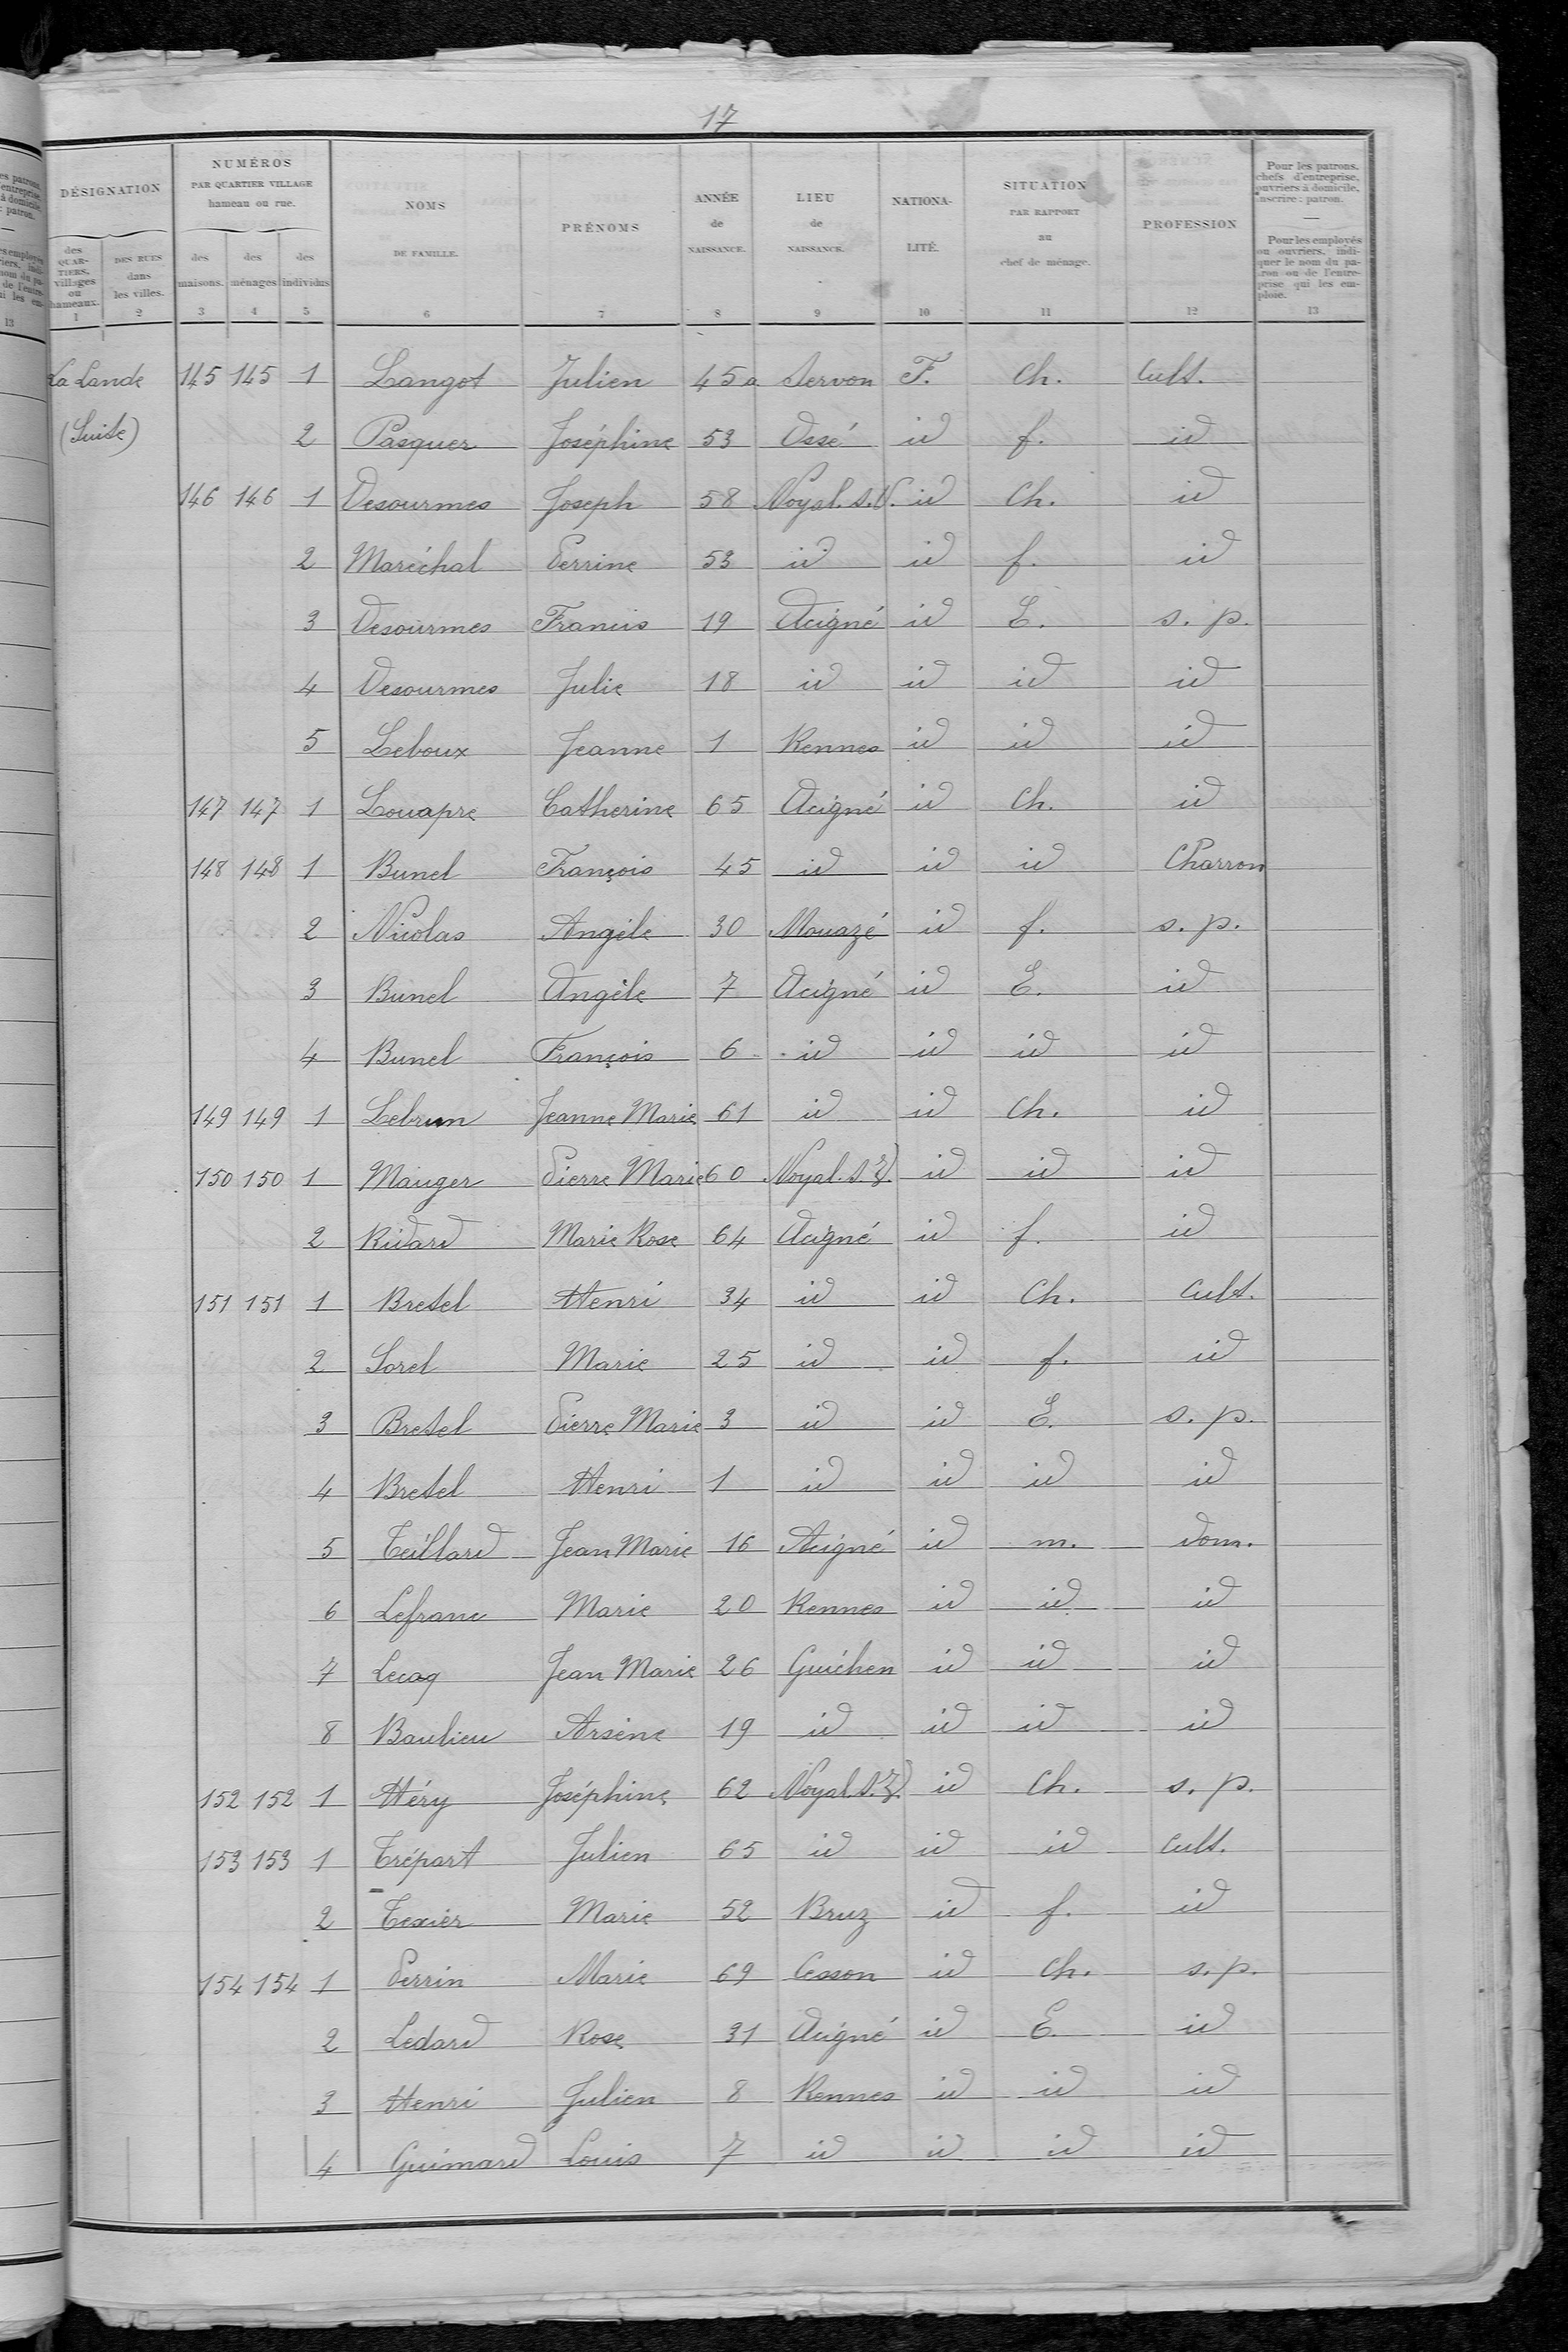 17
DÉSIGNATION
NUMÉROS
PAR QUARTIER VILLAGE
hameau ou rue.
NOMS
DE FAMILLE.
PRÉNOMS
ANNÉE
de
NAISSANCE.
LIEU
de
NAISSANCE.
NATIONA-
LITÉ.
SITUATION
PAR RAPPORT
au
chef de ménage.
PROFESSION
Pour les patrons,
chefs d'entreprise,
ouvriers à domicile,
inscrire : patron.
—
Pour les employés
ou ouvriers, indi-
quer le nom du pa-
tron ou de l'entre-
prise qui les em-
ploie.
des
QUAR-
TIERS,
villages
ou
hameaux.
DES RUES
dans
les villes.
des
maisons.
des
ménages
des
individus
1 2 3 4 5 6 7 8 9 10 11 12 13
La Lande 145 145 1 Langot Julien 45 a Servon F. Ch. Cult.
(Suite) 2 Pasquer Joséphine 53 Ossé id f. id
146 146 1 Desourmes Joseph 58 Noyal. s. V. id Ch. id
2 Maréchal Perrine 53 id id f. id
3 Desourmes Francis 19 Acigné id E. s. p.
4 Desourmes Julie 18 id id id id
5 Leboux Jeanne 1 Rennes id id id
147 147 1 Louapre Catherine 65 Acigné id Ch. id
148 148 1 Bunel François 45 id id id Charron
2 Nicolas Angèle 30 Mouazé id f. s. p.
3 Bunel Angèle 7 Acigné id E. id
4 Bunel François 6 id id id id
149 149 1 Lebrun Jeanne Marie 61 id id Ch. id
150 150 1 Mauger Pierre Marie 60 Noyal. s. V. id id id
2 Ridard Marie Rose 64 Acigné id f. id
151 151 1 Bretel Henri 34 id id Ch. Cult.
2 Sorel Marie 25 id id f. id
3 Bretel Pierre Marie 3 id id E. s. p.
4 Bretel Henri 1 id id id id
5 Teillard Jean Marie 16 Acigné id m. dom.
6 Lefranc Marie 20 Rennes id id id
7 Lecoq Jean Marie 26 Guichen id id id
8 Baulieu Arsène 19 id id id id
152 152 1 Héry Joséphine 62 Noyal. s. V. id Ch. s. p.
153 153 1 Trépart Julien 65 id id id Cult.
2 Texier Marie 52 Bruz id f. id
154 154 1 Perrin Marie 69 Cesson id Ch. s. p.
2 Ledard Rose 31 Acigné id E. id
3 Henri Julien 8 Rennes id id id
4 Guimard Louis 7 id id id id